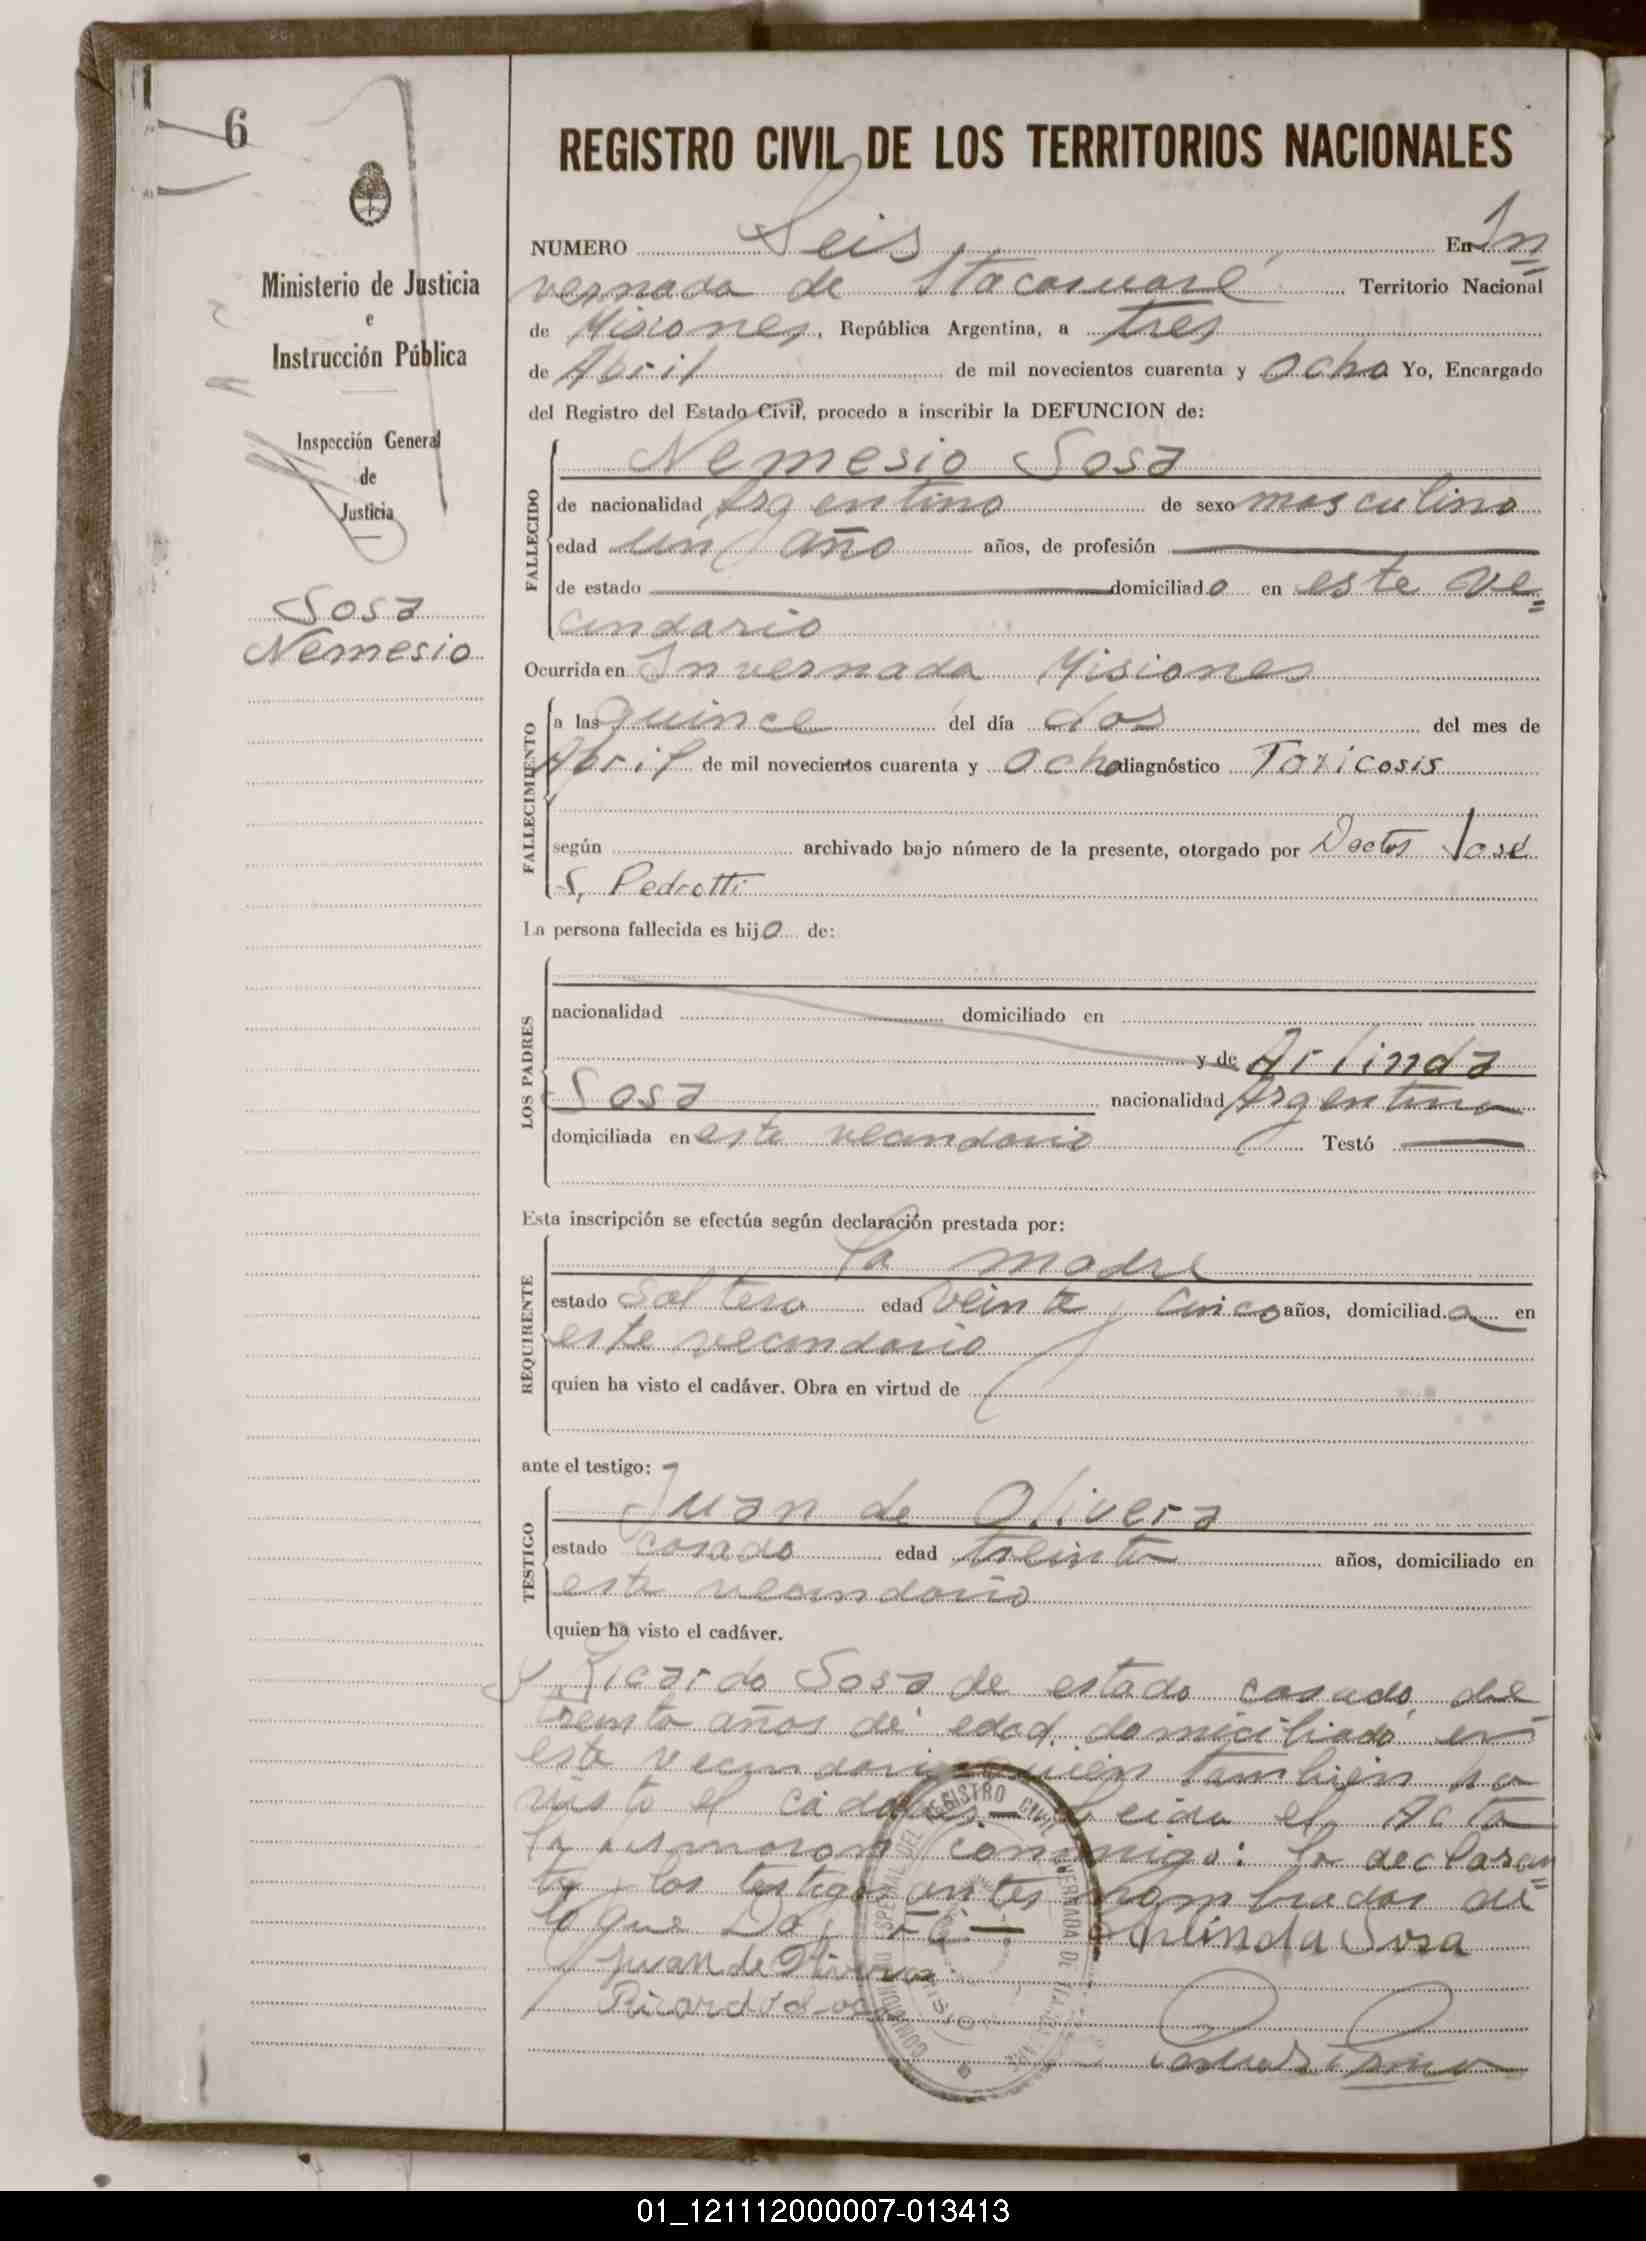 6
REGISTRO CIVIL DE LOS TERRITORIOS NACIONALES
NUMERO Seis En In
vernada de Itacaruaré Territorio Nacional
de Misiones, República Argentina, a tres
de Abril de mil novecientos cuarenta y ocho Yo, Encargado
del Registro del Estado Civil, procedo a inscribir la DEFUNCION de:
Ministerio de Justicia
e
Instrucción Pública
Inspección General
de
Justicia
Sosa
Nemesio
FALLECIDO
Nemesio Sosa
de nacionalidad Argentino de sexo masculino
edad un año años, de profesión
de estado domiciliado en este ve=
cindario
Ocurrida en Invernada Misiones
FALLECIMIENTO
a las quince del día dos del mes de
Abril de mil novecientos cuarenta y ocho diagnóstico Toxicosis
según archivado bajo número de la presente, otorgado por Doctor José
S. Pedrotti
La persona fallecida es hijo de:
LOS PADRES
nacionalidad domiciliado en
y de Arlinda
Sosa nacionalidad Argentina
domiciliada en este vecindario Testó
Esta inscripción se efectúa según declaración prestada por:
REQUIRENTE
la madre
estado Soltera edad veinte y cinco años, domiciliada en
este vecindario
quien ha visto el cadáver. Obra en virtud de
ante el testigo:
TESTIGO
Juan de Olivera
estado casado edad treinta años, domiciliado en
este vecindario
quien ha visto el cadáver.
y Ricardo Sosa de estado casado, de
treinta años de edad, domiciliado en
este vecindario quien tambien ha
visto el cadaver — Leida el Acta
la firmaron conmigo: la declaran
te y los testigos antes nombrados de
lo que Doy Fé — Arlinda Sosa
Juan de Olivera
Ricardo Sosa
REGISTRO CIVIL
01_121112000007-013413